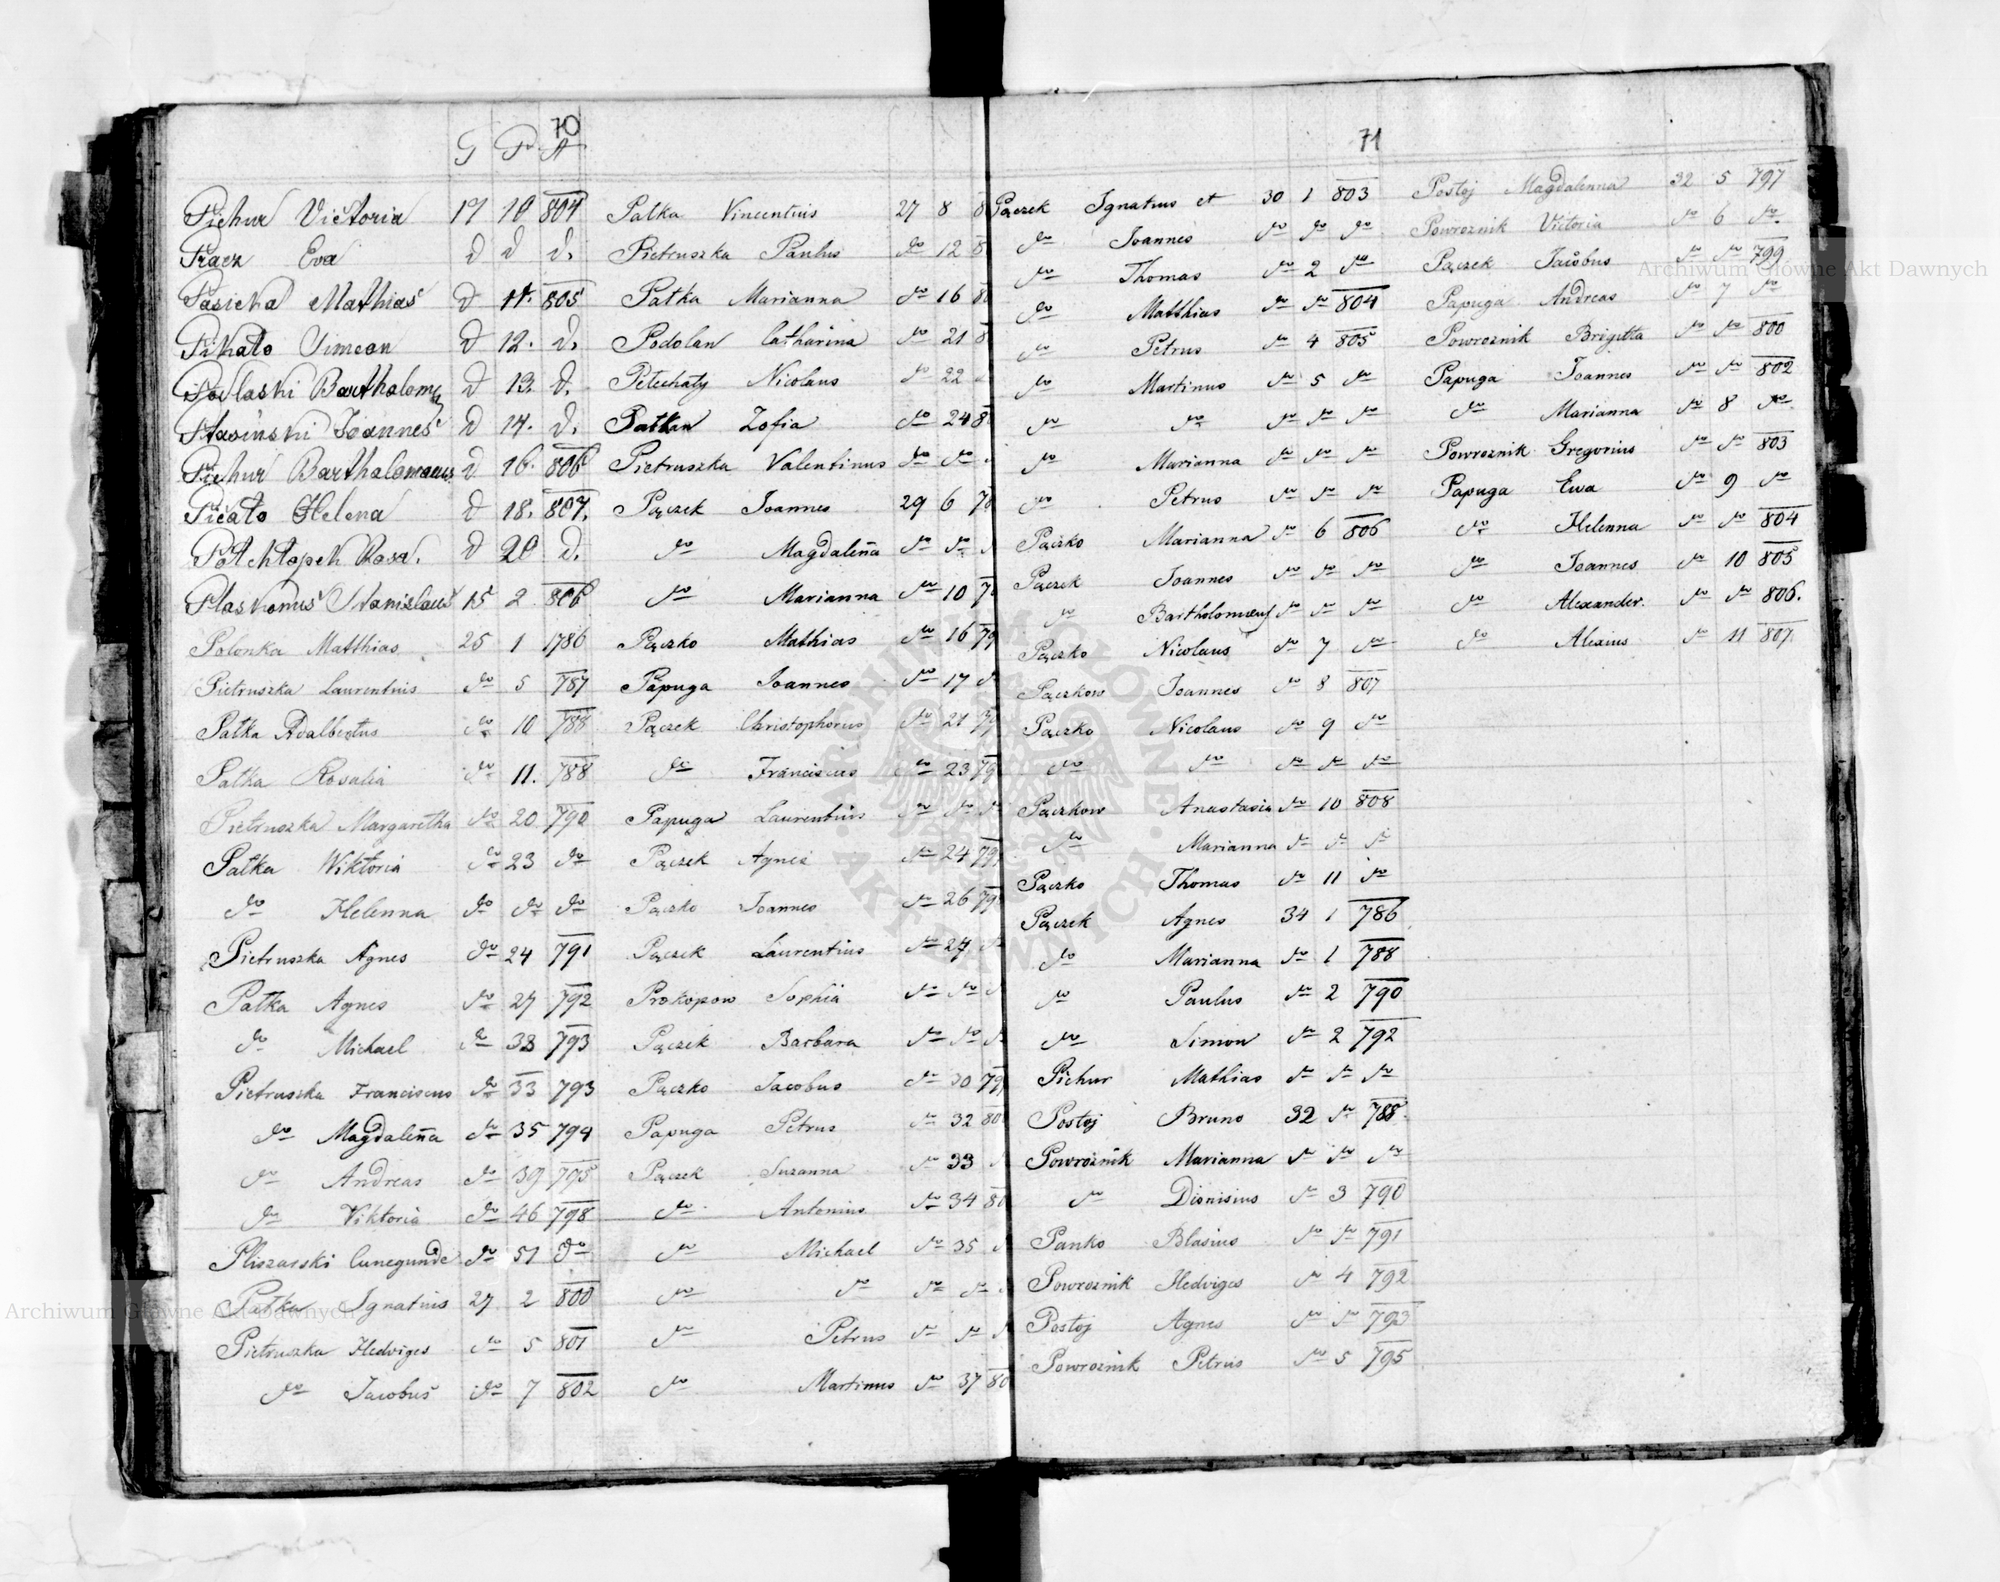 70
G P A
Pichur Victoria 17 10 804
Pracz Eva d d d.
Pasieka Mathias d 11. 805
Pikato Simeon d 12. d.
Podlaski Bartholome d 13. d.
Stasinski Joannes d 14. d.
Pichur Bartholomaeus d 16. 806
Picato Helena d 18. 807.
Potchlopek Rosa. d 20 d.
Plaskonus Stanislaus 15 2 806
Polonka Matthias 25 1 1786
Pietruszka Laurentius do 5 787
Patka Adalbertus do 10 788
Patka Rosalia do 11. 788
Pietruszka Margaretha do 20 790
Patka Wiktoria do 23 do
do Helenna do do do
Pietruszka Agnes do 24 791
Patka Agnes do 27 792
do Michael do 33 793
Pietruszka Franciscus do 33 793
do Magdalena do 35 794
do Andreas do 39 795
do Viktoria do 46 798
Pliszarski Cunegunde do 51 do
Patka Ignatius 27 2 800
Pietruszka Hedviges do 5 801
do Jacobus do 7 802
Palka Vincentius 27 8 8
Pietruszka Paulus do 12 8
Patka Marianna do 16 8
Podolan Catharina do 21 8
Petechaty Nicolaus do 22
Patkan Zofia do 24 8
Pietruszka Valentinus do do
Pączek Joannes 29 6 78
do Magdalena do do
do Marianna do 10 7
Pączko Mathias do 16 79
Papuga Joannes do 17 d
Pączek Christophorus do 21 79
do Franciscus do 23 79
Papuga Laurentius do do do
Pączek Agnes do 24 79
Pączko Joannes do 26 79
Pączek Laurentius do 27 do
Prokopow Sophia do do d
Pączek Barbara do do d
Pączko Jacobus do 30 79
Papuga Petrus do 32 80
Pączek Suzanna do 33
do Antonius do 34 80
do Michael do 35
do do do do
do Petrus do do d
do Martinus do 37 80
71
Pączek Ignatius et 30 1 803
do Joannes do do do
do Thomas do 2 do
do Matthias do do 804
do Petrus do 4 805
do Martinus do 5 do
do do do do do
do Marianna do do do
do Petrus do do do
Pączko Marianna do 6 806
Pączek Joannes do do do
do Bartholomeus do do do
Pączko Nicolaus do 7 do
Pączkow Joannes do 8 807
Pączko Nicolaus do 9 do
do do do do do
Pączkow Anastasia do 10 808
do Marianna do do do
Pączko Thomas do 11 do
Pączek Agnes 34 1 786
do Marianna do 1 788
do Paulus do 2 790
do Simon do 2 792
Pichur Mathias do do do
Postoj Bruno 32 do 788
Powroznik Marianna do do do
do Dionisius do 3 790
Panko Blasius do do 791
Powroznik Hedviges do 4 792
Postoj Agnes do do 793
Powroznik Petrus do 5 795
Postoj Magdalenna 32 5 797
Powroznik Victoria do 6 do.
Pączek Jacobus do do 799
Papuga Andreas do 7 do
Powroznik Brigitta do do 800
Papuga Joannes do do 802
do Marianna do 8 do
Powroznik Gregorius do do 803
Papuga Ewa do 9 do
do Helenna do do 804
do Joannes do 10 805
do Alexander. do do 806.
do Alexius do 11 807
Archiwum Główne Akt Dawnych
Archiwum Główne Akt Dawnych
ARCHIWUM GŁÓWNE AKT DAWNYCH